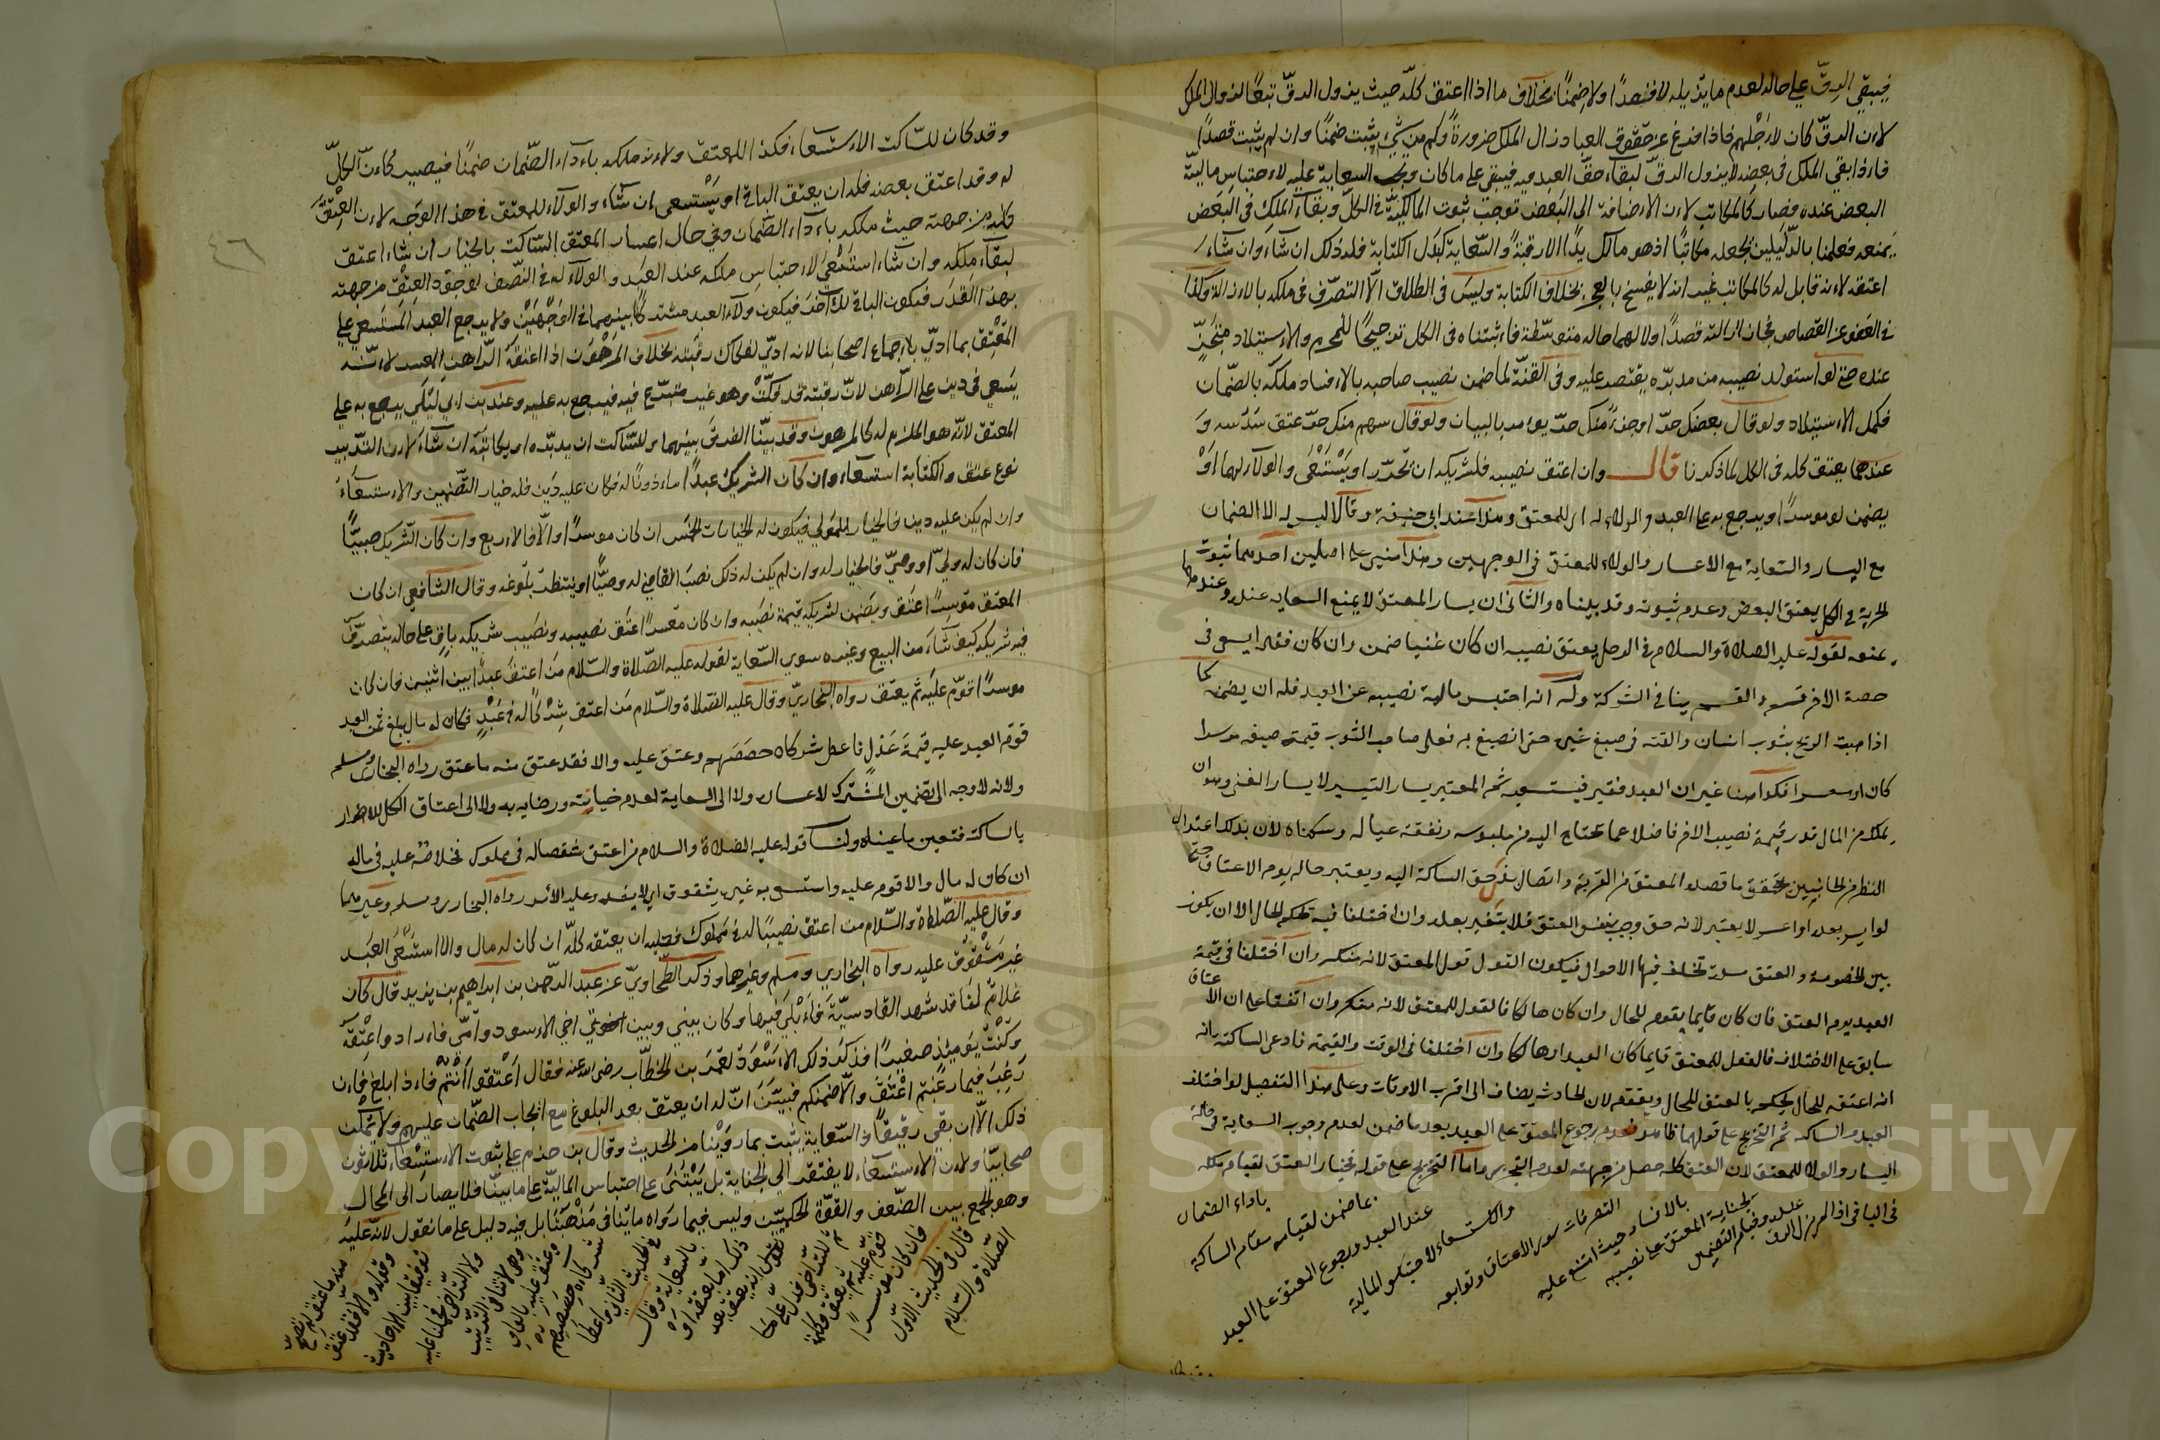 فيبقي الرقّ علي حاله لعدم ما يزيله لا قصداً ولا ضمناً بخلاف ما اذا اعتق كلّه حيث يزول الرقّ تبعاً لزوال الملك
لاءن الرقّ كان لاءجلهم فاذا فرغ عن حقوق العباد زال الملك ضرورةً وكم من شيء يثبت ضمنًا وان لم يثبت قصداً
فاءذا بقي الملك في بعضه لا يزول الرقّ لبقاء حقّ العبد فيه فيبقي علي ما كان وتجب السعاية عليه لاءحتباس ماليّة
البعض عنده فصار كالمكاتب لاءن الاءضافة الي البعض توجب ثبوت المالكيّة في الكلّ وبقاء الملك في البعض
يمنعه فعلمنا بالدّليلين بجعله مكاتبًا اذ هو مالك يدًا الا رقبةً والسّعاية كبدل الكتابة فله ذلك ان شاء وان شاء
اعتقه لاءنه قابل له كالمكاتب غير انه لا يفسخ بالعجز بخلاف الكتابة وليس في الطلاق الّا التصرّف في ملكه بالاءزالة وكذا
في العفو عن القصاص فجاز ازالته قصداً ولا لهما حالة متوسّطة فاءثبتناه في الكل ترجيحًا للمحرم والاءستيلاد متجزّ
عنده حتي لو استولد نصيبه من مدبّره يقتصر عليه وفي القنّة لما ضمن نصيب صاحبه بالاءفساد ملكه بالضّمان
فكمل الاءستيلاد ولو قال بعضك حرّ او جزءٌ منك حرّ يؤمر بالبيان ولو قال سهم منك حرّ عتق سدسه و
عندهما يعتق كله في الكل لما ذكرنا قال وان اعتق نصيبه فلشريكه ان يحرّر او يستسعي والولاء لهما او
يضمن لو موسراً ويرجع به علي العبد والولاء له اي للمعتق وهذا عند ابي حنيفة وقالا ليس له الا الضمان
مع اليسار والسعاية مع الاعسار والولاء للمعتق في الوجهين وهذا مبني علي اصلين احدهما ثبوت
الحرية في الكل يعتق البعض وعدم ثبوته وقد بيناه والثاني ان يسار المعتق لا يمنع السعاية عنده وعندهما
يمنعه لقوله عليه الصلاة والسلام في الرجل يعتق نصيبه ان كان غنيا ضمن وان كان فقيرا يسعى في
حصة الاخر قسم والقسمة ينافي الشركة وله انه احتبس مالية نصيبه عن العبد فله ان يضمنه كما
اذا هبت الريح بثوب انسان والقته في صبغ غيره حتى انصبغ به فعلى صاحب الثوب قيمة صبغه موسرا
كان او معسرا فكذا هنا غير ان العبد فقير فيستسعيه ثم المعتبر يسار التيسير لا يسار الغنى وهو ان
يملك من المال قدر قيمة نصيب الاخر فاضلا عما يحتاج اليه من ملبوسه ونفقة عياله وسكناه لان بذلك اعتدال
النظر من الجانبين بتحقق ما قصده المعتق من القربة وايصال بدل حق الساكت اليه ويعتبر حاله يوم الاعتاق حتى
لو ايسر بعده او اعسر لا يعتبر لانه حق وجب بنفس العتق فلا يتغير بعده وان اختلفا فيه تحكم الحال الا ان يكون
بين الخصومة والعتق مدة تختلف فيها الاحوال فيكون القول قول المعتق لانه منكر وان اختلفا في قيمة
العبد يوم العتق فان كان قايما يقوم للحال وان كان هالكا فالقول للمعتق لانه منكر وان اتفقا علي ان الاعتاق
سابق علي الاختلاف فالقول للمعتق قايما كان العبد او هالكا وان اختلفا في الوقت والقيمة فادعى الساكت بانه
انه اعتقه للحال يحكم بالعتق للحال ويقوم لان الحادث يضاف الى اقرب الاوقات وعلى هذا التفصيل لو اختلف
العبد والساكت ثم التخريج على قولهما ظاهر فعدم رجوع المعتق علي العبد بعد ما ضمن لعدم وجوب السعاية في حالة
اليسار والولاء للمعتق لان العتق كله حصل من جهته لعدم التجزي واما التخريج على قوله فخيار العتق لقيام ملكه
في الباقي اذ المعتق لم يزل الرق
عنده وخيار التضمين
لجناية المعتق علي نصيبه
بالافساد حيث امتنع عليه
التصرفات سوى الاعتاق وتوابعه
والاستسعاء لاحتباس المالية
عند العبد ورجوع المعتق علي العبد
بما ضمن لقيامه مقام الساكت
باداء الضمان
وقد كان
٤٦
وقد كان للسّاكت الاءستسعاء فكذا للمعتق ولاءنه ملكه باءداء الضّمان ضمنًا فيصير كاءنّ الكلّ
له وقد اعتق بعضه فله ان يعتق الباقي او يستسعي ان شاء والولاء للمعتق في هذا الوجه لاءن العتق
كله من جهته حيث ملكه باءداء الضّمان وفي حال اعسار المعتق السّاكت بالخيار ان شاء اعتق
لبقاء ملكه وان شاء استسعي لاءحتباس ملكه عند العبد والولاء له في النّصف لوجود العتق من جهته
بهذا القدر فيكون الباقي للآخر فيكون ولاء العبد مشتركًا بينهما في الوجهين ولا يرجع العبد المستسعي علي
المعتق بما ادّي باءجماع اصحابنا لانه ادّي لفكاك رقبته بخلاف المرهون اذا اعتقه الرّاهن العبد لاءنّه
يسعي في دين علي الرّاهن لانّ رقبته قد فكّت وهو غير متبرّع فيه فيرجع به عليه وعند بن ابي ليلي يرجع به علي
المعتق لانّه هو الملزم له كالمرهون وقد بيّنّا الفرق بينهما وللسّاكت ان يدبّره او يكاتبه ان شاء لاءن التّدبير
نوع عتق والكتابة استسعاء وان كان الشريك عبداً ماءذونًا له فكان عليه دين فله خيار التّضمين والاءستسعاء
وان لم يكن عليه دين فالخيار للمولي فيكون له الخيارات الخمس ان كان موسراً والّا فالاءربع وان كان الشّريك صبيّاً
فان كان له وليّ او وصيّ فالخيار له وان لم يكن له ذلك نصب القاضي له وصيًّا او ينتظر بلوغه وقال الشافعي ان كان
المعتق موسراً اعتق ويضمن لشريكه قيمة نصيبه وان كان معسراً اعتق نصيبه ونصيب شريكه باقٍ علي حاله يتصرّف
فيه شريكه كيف شاء من البيع وغيره سوي السّعاية لقوله عليه الصّلاة والسّلام من اعتق عبداً بين اثنين فان كان
موسراً قوّم عليه ثم يعتق رواه البخاريّ وقال عليه الصّلاة والسّلام من اعتق شركًا له في عبدٍ فكان له مال يبلغ ثمن العبد
قوّم العبد عليه قيمة عدل فاعطى شركاه حصصهم وعتق عليه والا فقد عتق منه ما عتق رواه البخارى ومسلم
ولانه لا وجه الى تضمين المشترك لاعساره ولا الى السعاية لعدم جنايته ورضايه به ولا الى اعتاق الكل للاضرار
بالساكت فتعين ما عيناه ولنا قوله عليه الصلاة والسلام من اعتق شقصا له في مملوك فخلاصه عليه في ماله
ان كان له مال والا قوم عليه واستسعى به غير مشقوق اي لا يشدد عليه الامر رواه البخارى ومسلم وغيرهما
وقال عليه الصّلاة والسّلام من اعتق نصيبًا له في مملوك فعليه ان يعتقه كلّه ان كان له مال والا استسعي العبد
غير مشقوق عليه رواه البخاري ومسلم وغيرهما وذكر الطّحاويّ عن عبد الرّحمن بن ابراهيم بن يزيد قال كان
غلامٌ لنا قد شهد القادسيّة فاءبلي فيها وكان بيني وبين اخوتي اخي الاءسود وامّي فاءرادوا عتقه
وكنت يومئذ صغيراً فذكر ذلك الاءسود لعمر بن الخطّاب رضي الله عنه فقال اعتقوا انتم فاءذا بلغ فاءن
رغب فيما رغبتم اعتق والّا ضمنكم فبيّن انّ له ان يعتق بعد البلوغ مع ايجاب الضّمان عليهم ولا يمكن
ذلك الّا ان بقي رقيقًا والسّعاية يثبت بما روينا من الحديث وقال بن حزم علي ثبوت الاءستسعاء ثلاثون
صحابيّا ولاءن الاءستسعاء لا يفتقر الي الجناية بل يبتني علي احتباس الماليّة علي ما بينّا فلا يصار الي المحال
وهو الجمع بين الضّعف والقوّة الحكميّتين وليس فيما رواه ما ينافي مذهبنا بل فيه دليل علي ما نقول لانّه عليه
الصّلاة والسّلام
قال في الحديث الاوّل
فان كان موسراً
قوّم عليه ثم يعتق
ذلك اما بعتقه او
بالسّعاية وقال
في الحديث الثاني واعطا
شركاءه حصصهم
وعتق عليه بالفاء
وهي لا تنافي الترتيب
ولا التّراخي فحملنا عليه
توفيقًا بين الاحاديث
وقوله والّا فقد عتق
منه ما عتق لم تصحّ